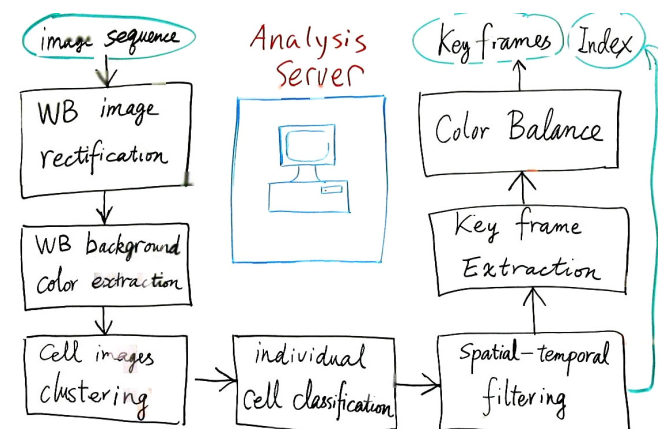 image sequence
WB image
rectification
WB background
color extraction
Cell images
clustering
individual
Cell classification
Spatial-temporal
filtering
Key frame
Extraction
Color Balance
Key frames
Index
Analysis
Server